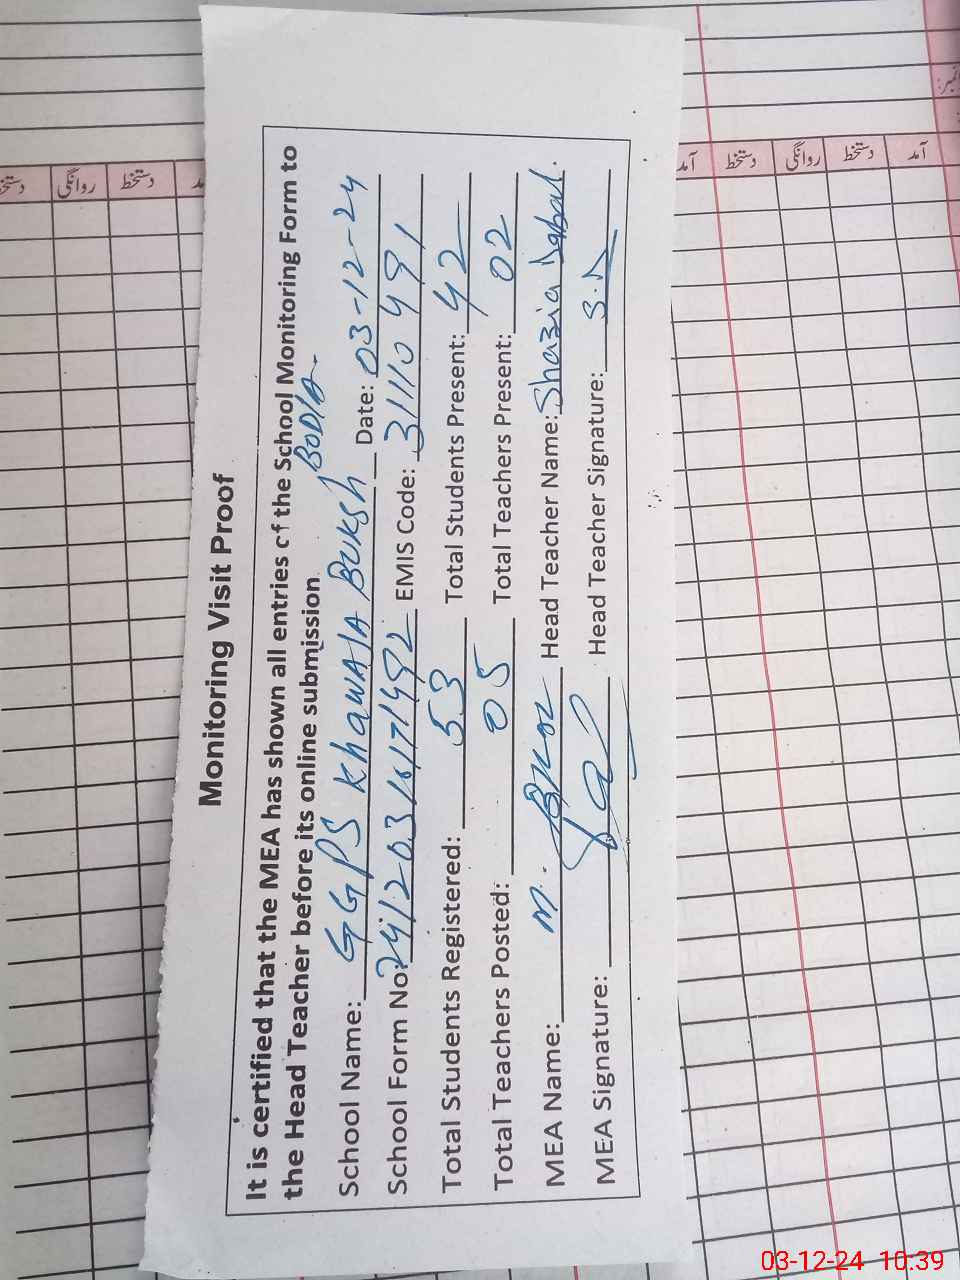 Monitoring Visit Proof
It is certified that the MEA has shown all entries of the School Monitoring Form to
the Head Teacher before its online submission
School Name: GGPS KhAWAJA BUKSh BODLA. Date: 03-12-24
School Form No: EMIS Code: 31110491
Total Students Registered: 53 Total Students Present: 42
Total Teachers Posted: 05 Total Teachers Present: 02
MEA Name: M. Head Teacher Name: Shazia Iqbal.
MEA Signature: Head Teacher Signature: S.A
دستخط روانگی دستخط
آمد دستخط روانگی دستخط آمد
03-12-24 10:39